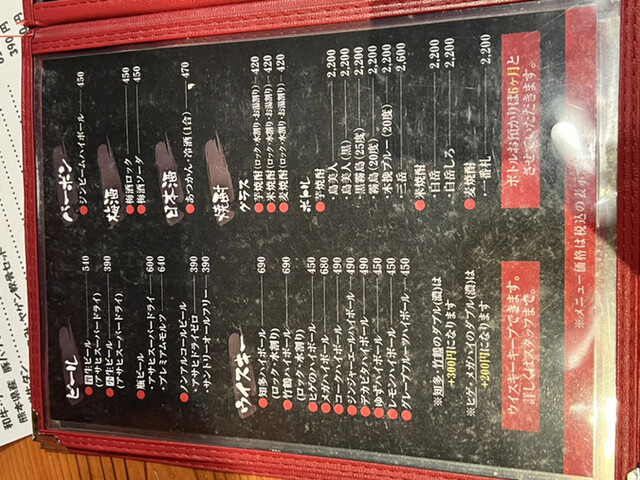 ビール
●生ビール 540
(アサヒスーパードライ)
●生ビール 390
(アサヒスーパードライ)
●瓶ビール
・アサヒスーパードライ 600
・プレミアムモルツ 640
●ノンアルコールビール
・アサヒドライゼロ 390
・サントリーオールフリー 390
ウイスキー
●知多ハイボール 690
(ロック・水割り)
●竹鶴ハイボール 690
(ロック・水割り)
●ヒゲのハイボール 450
●メガハイボール 680
●コークハイボール 490
●ジンジャーエールハイボール 490
●デカビタハイボール 490
●ゆずハイボール 450
●レモンハイボール 450
●グレープフルーツハイボール 450
※知多・竹鶴のダブル(濃)は
+300円になります
※ヒゲ・メガハイのダブル(濃)は
+200円になります
ウイスキーキープできます。
詳しくはスタッフまで。
バーボン
●ジンビームハイボール 450
梅酒
●梅酒ロック 450
●梅酒ソーダ 450
日本酒
●あつかん・冷酒(1合) 470
焼酎
グラス
●芋焼酎(ロック・水割り・お湯割り) 420
●米焼酎(ロック・水割り・お湯割り) 420
●麦焼酎(ロック・水割り・お湯割り) 420
ボトル
●芋焼酎
・島美人 2,200
・島美人(黒) 2,200
・黒霧島(25度) 2,200
・霧島(20度) 2,200
・木挽ブルー(20度) 2,200
・三岳 2,600
●米焼酎
・白岳 2,200
・白岳しろ 2,200
●麦焼酎
・一番札 2,200
ボトルお預かりは6ヶ月と
させていただきます。
※メニュー価格は税込の表示